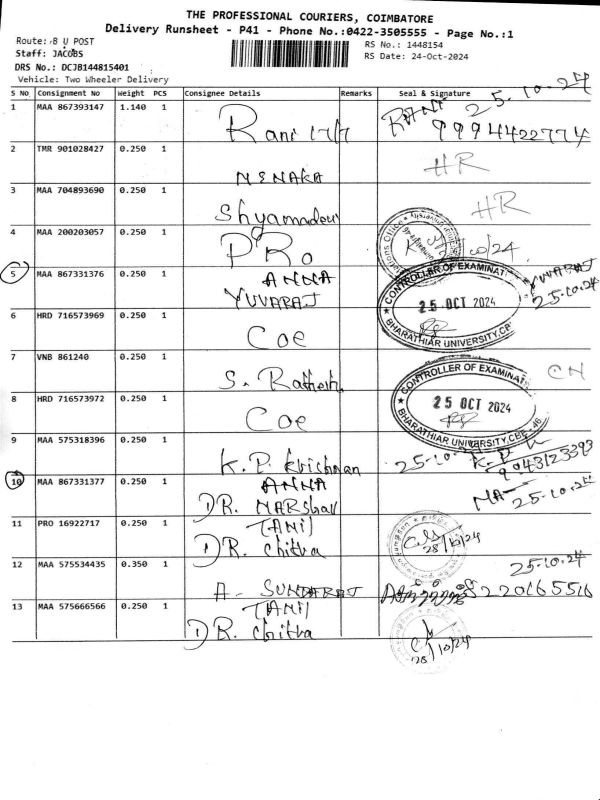 THE PROFESSIONAL COURIERS, COIMBATORE
Delivery Runsheet - P41 - Phone No.:0422-3505555 - Page No.:1
Route: B U POST
Staff: JACOBS
DRS No.: DCJB144815401
Vehicle: Two Wheeler Delivery
RS No.: 1448154
RS Date: 24-Oct-2024
S No Consignment No Weight PCS Consignee Details Remarks Seal & Signature
1 MAA 867393147 1.140 1 Rani RANI 25-10-24
9994422774
2 TMR 901028427 0.250 1 MENAKA HR
3 MAA 704893690 0.250 1 Shyamadevi HR
4 MAA 200203057 0.250 1 PRO
5 MAA 867331376 0.250 1 ANNA
YUVARAJ YUVARAJ 25-10-24
CONTROLLER OF EXAMINATI
25 OCT 2024
BHARATHIAR UNIVERSITY, CBE
6 HRD 716573969 0.250 1 Coe
7 VNB 861240 0.250 1 S. Rathesh
8 HRD 716573972 0.250 1 Coe
CONTROLLER OF EXAMINATI
25 OCT 2024
BHARATHIAR UNIVERSITY, CBE - 46
9 MAA 575318396 0.250 1 K.P. Krishnan 25-10-24
9043123393
10 MAA 867331377 0.250 1 ANNA
DR. 25-10-24
11 PRO 16922717 0.250 1 TAMIL
DR. Chitra 28/10/24
12 MAA 575534435 0.350 1 A. SUNDARAJ 25-10-24
13 MAA 575666566 0.250 1 TAMIL
DR. Chitra 28/10/24